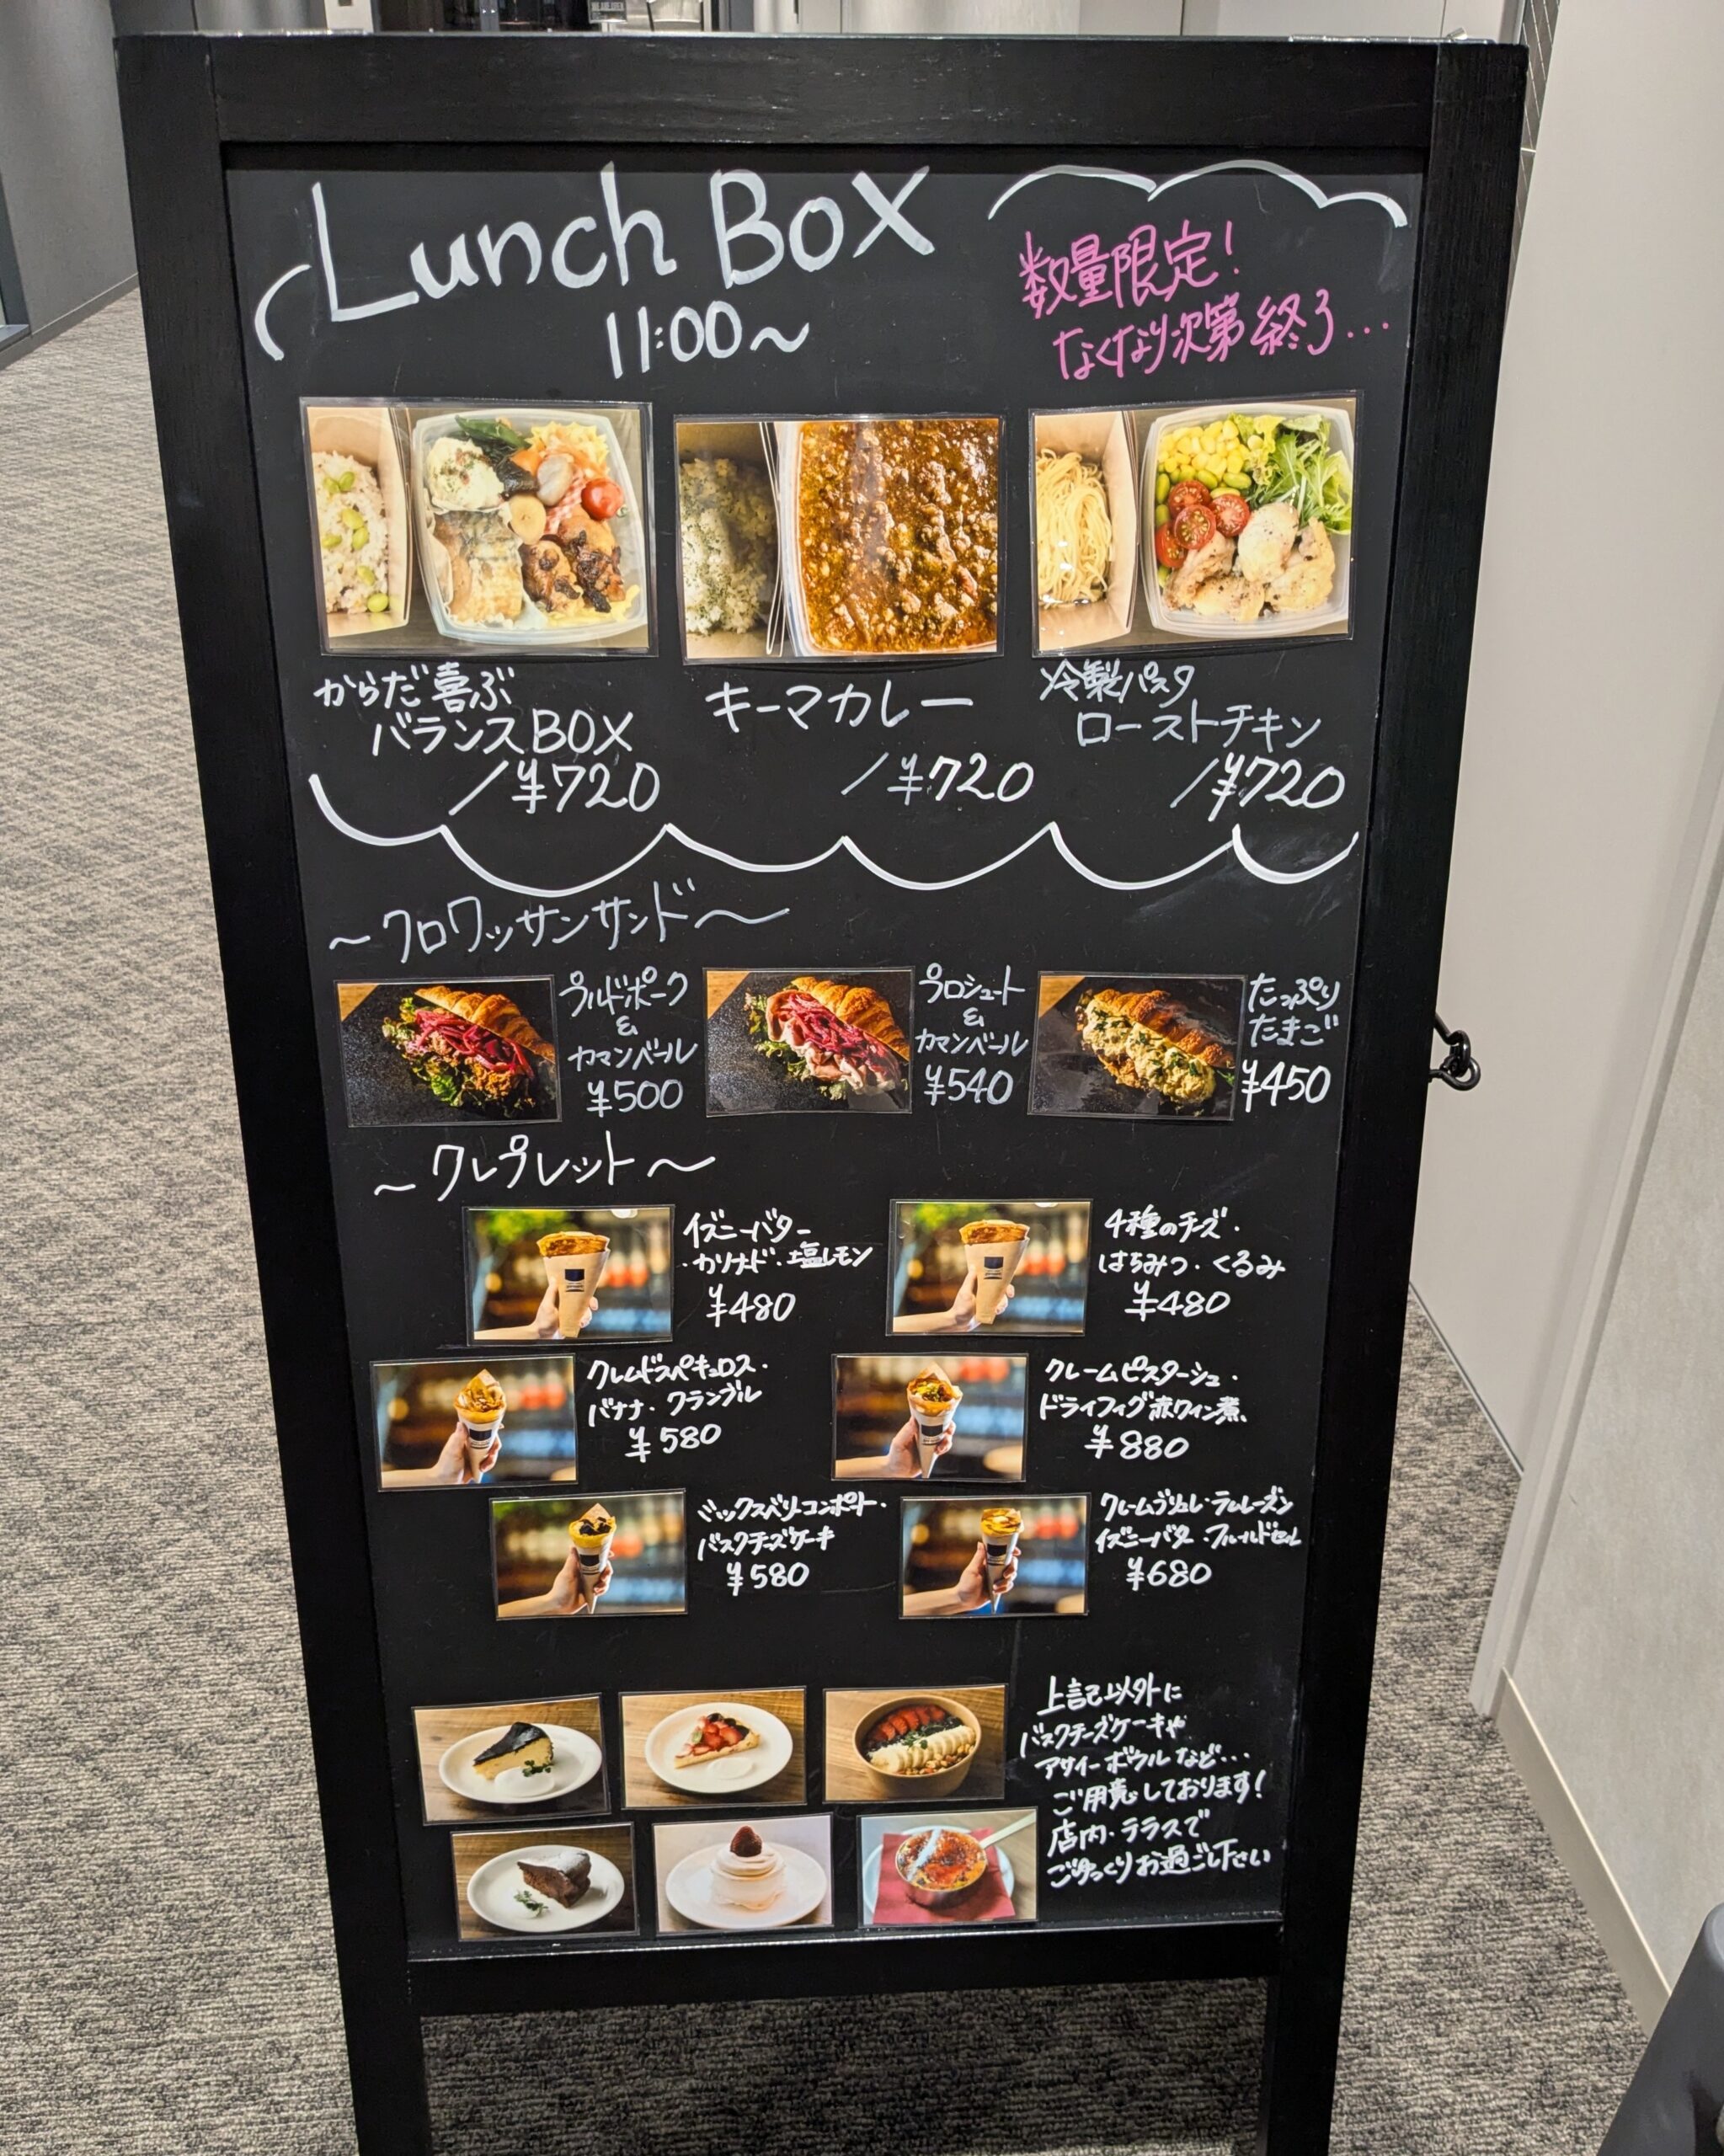 Lunch Box
11:00～
数量限定!
なくなり次第終了...
からだ喜ぶ
バランスBOX
/¥720
キーマカレー
/¥720
冷製パスタ
ローストチキン
/¥720
～クロワッサンサンド～
プルドポーク
&
カマンベール
¥500
プロシュート
&
カマンベール
¥540
たっぷり
たまご
¥450
～クレプレット～
イズニーバター
・カソナード・塩レモン
¥480
4種のチーズ・
はちみつ・くるみ
¥480
クレムドスペキュロス・
バナナ・クランブル
¥580
クレームピスターシュ・
ドライフィグ赤ワイン煮、
¥880
ミックスベリーコンポート・
バスクチーズケーキ
¥580
クレームブリュレ・ラムレーズン
イズニーバター・フルールドセル
¥680
上記以外に
バスクチーズケーキや
アサイーボウルなど...
ご用意しております!
店内・テラスで
ごゆっくりお過ごし下さい